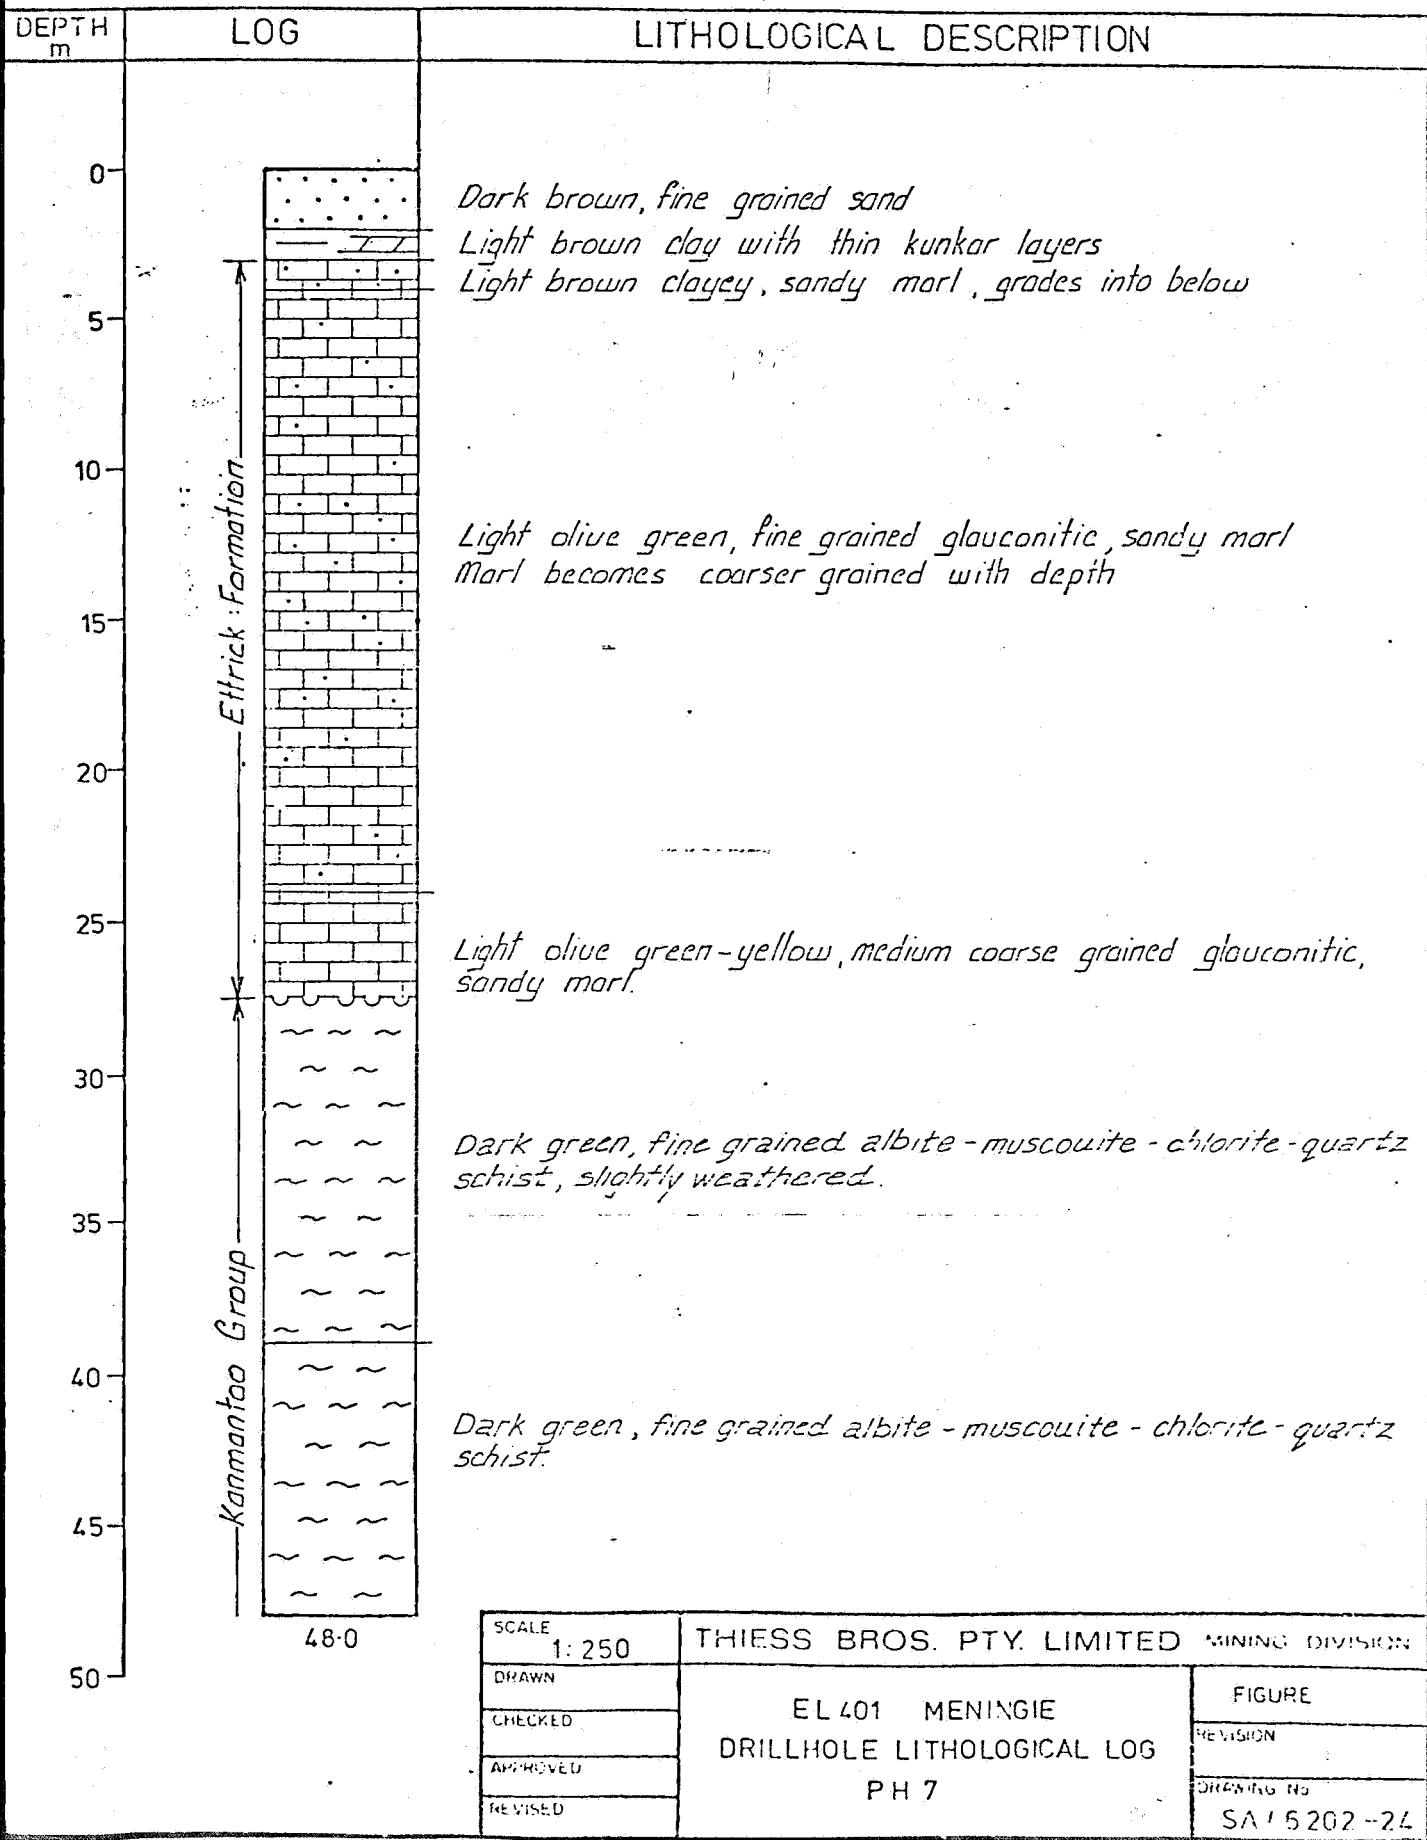 DEPTH
m
LOG
LITHOLOGICAL DESCRIPTION
0
Dark brown, fine grained sand
Light brown clay with thin kunkar layers
Light brown clayey, sandy marl, grades into below
5
10
Ettrick Formation
Light olive green, fine grained glauconitic, sandy marl
Marl becomes coarser grained with depth
15
20
25
Light olive green-yellow, medium coarse grained glauconitic,
sandy marl.
30
Dark green, fine grained albite-muscovite-chlorite-quartz
schist, slightly weathered.
35
Kanmantoo Group
40
Dark green, fine grained albite-muscovite-chlorite-quartz
schist.
45
48·0
50
SCALE
1:250
DRAWN
CHECKED
APPROVED
REVISED
THIESS BROS. PTY. LIMITED MINING DIVISION
EL 401 MENINGIE
DRILLHOLE LITHOLOGICAL LOG
PH 7
FIGURE
REVISION
DRAWING No
SA/5202-24